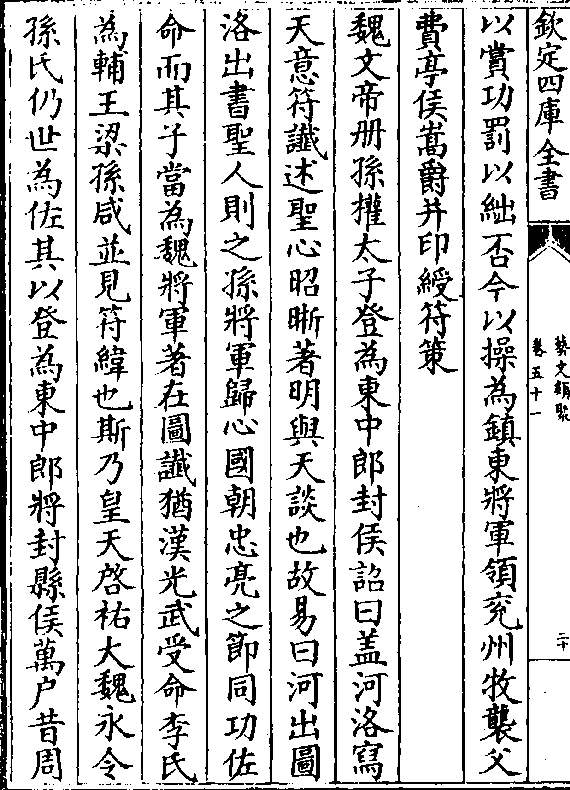 欽定四庫全書
藝文類聚
卷五十一
二十
以賞功罰以絀否今以操為鎮東將軍領兖州牧襲父
費亭侯嵩爵并印綬符策
魏文帝册孫權太子登為東中郎封侯詔曰盖河洛寫
天意符讖述聖心昭晰著明與天談也故易曰河出圖
洛出書聖人則之孫將軍歸心國朝忠亮之節同功佐
命而其子當為魏將軍著在圖讖猶漢光武受命李氏
為輔王梁孫咸並見符緯也斯乃皇天啓祐大魏永令
孫氏仍世為佐其以登為東中郎將封縣侯萬户昔周